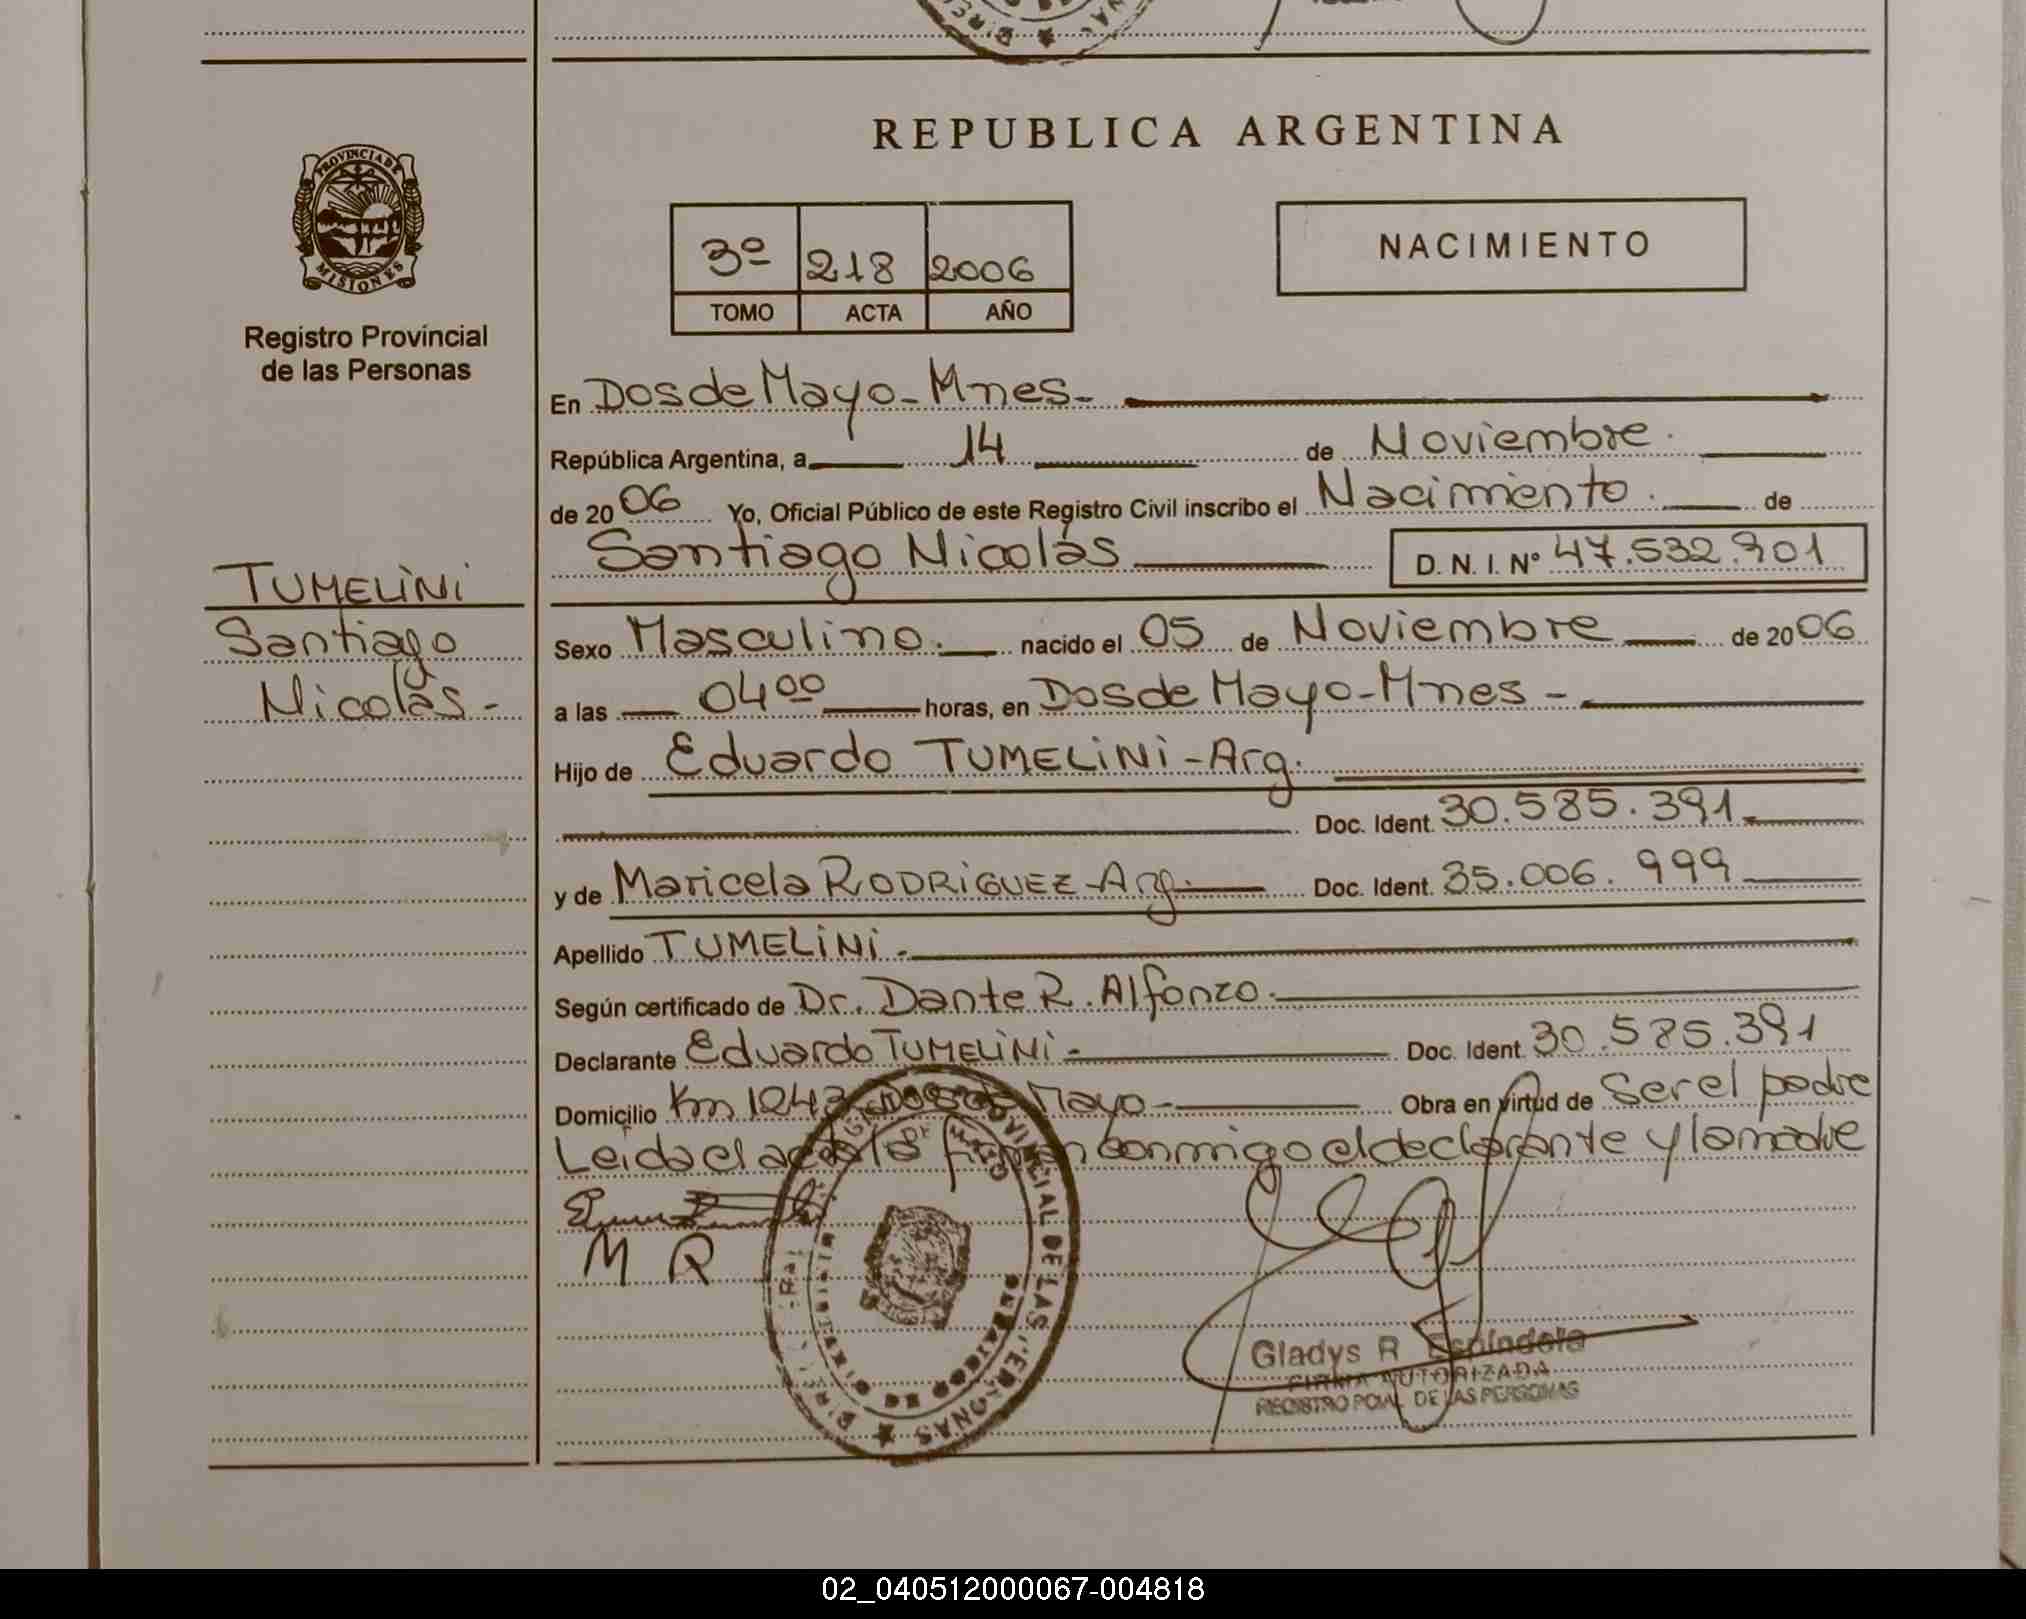 REPUBLICA ARGENTINA
PROVINCIA DE
MISIONES
Registro Provincial
de las Personas
TUMELINI
Santiago
Nicolás-
3º 218 2006
TOMO ACTA AÑO
NACIMIENTO
En Dos de Mayo-Mnes-
República Argentina, a 14 de Noviembre.
de 2006 Yo, Oficial Público de este Registro Civil inscribo el Nacimiento. de
Santiago Nicolás D. N. I. Nº 47.532.901
Sexo Masculino. nacido el 05 de Noviembre de 2006
a las 04 00 horas, en Dos de Mayo-Mnes-
Hijo de Eduardo TUMELINI-Arg.
Doc. Ident. 30.585.391
y de Maricela RODRIGUEZ-Arg. Doc. Ident. 35.006.999
Apellido TUMELINI.
Según certificado de Dr. Dante R. Alfonzo.
Declarante Eduardo TUMELINI- Doc. Ident. 30.585.391
Domicilio Km 1243 Dos de Mayo- Obra en virtud de Ser el padre
Leida el acta la firman conmigo el declarante y la madre
M R
PROVINCIAL DE LAS PERSONAS
Gladys R Espindola
FIRMA AUTORIZADA
REGISTRO PCIAL DE LAS PERSONAS
02_040512000067-004818